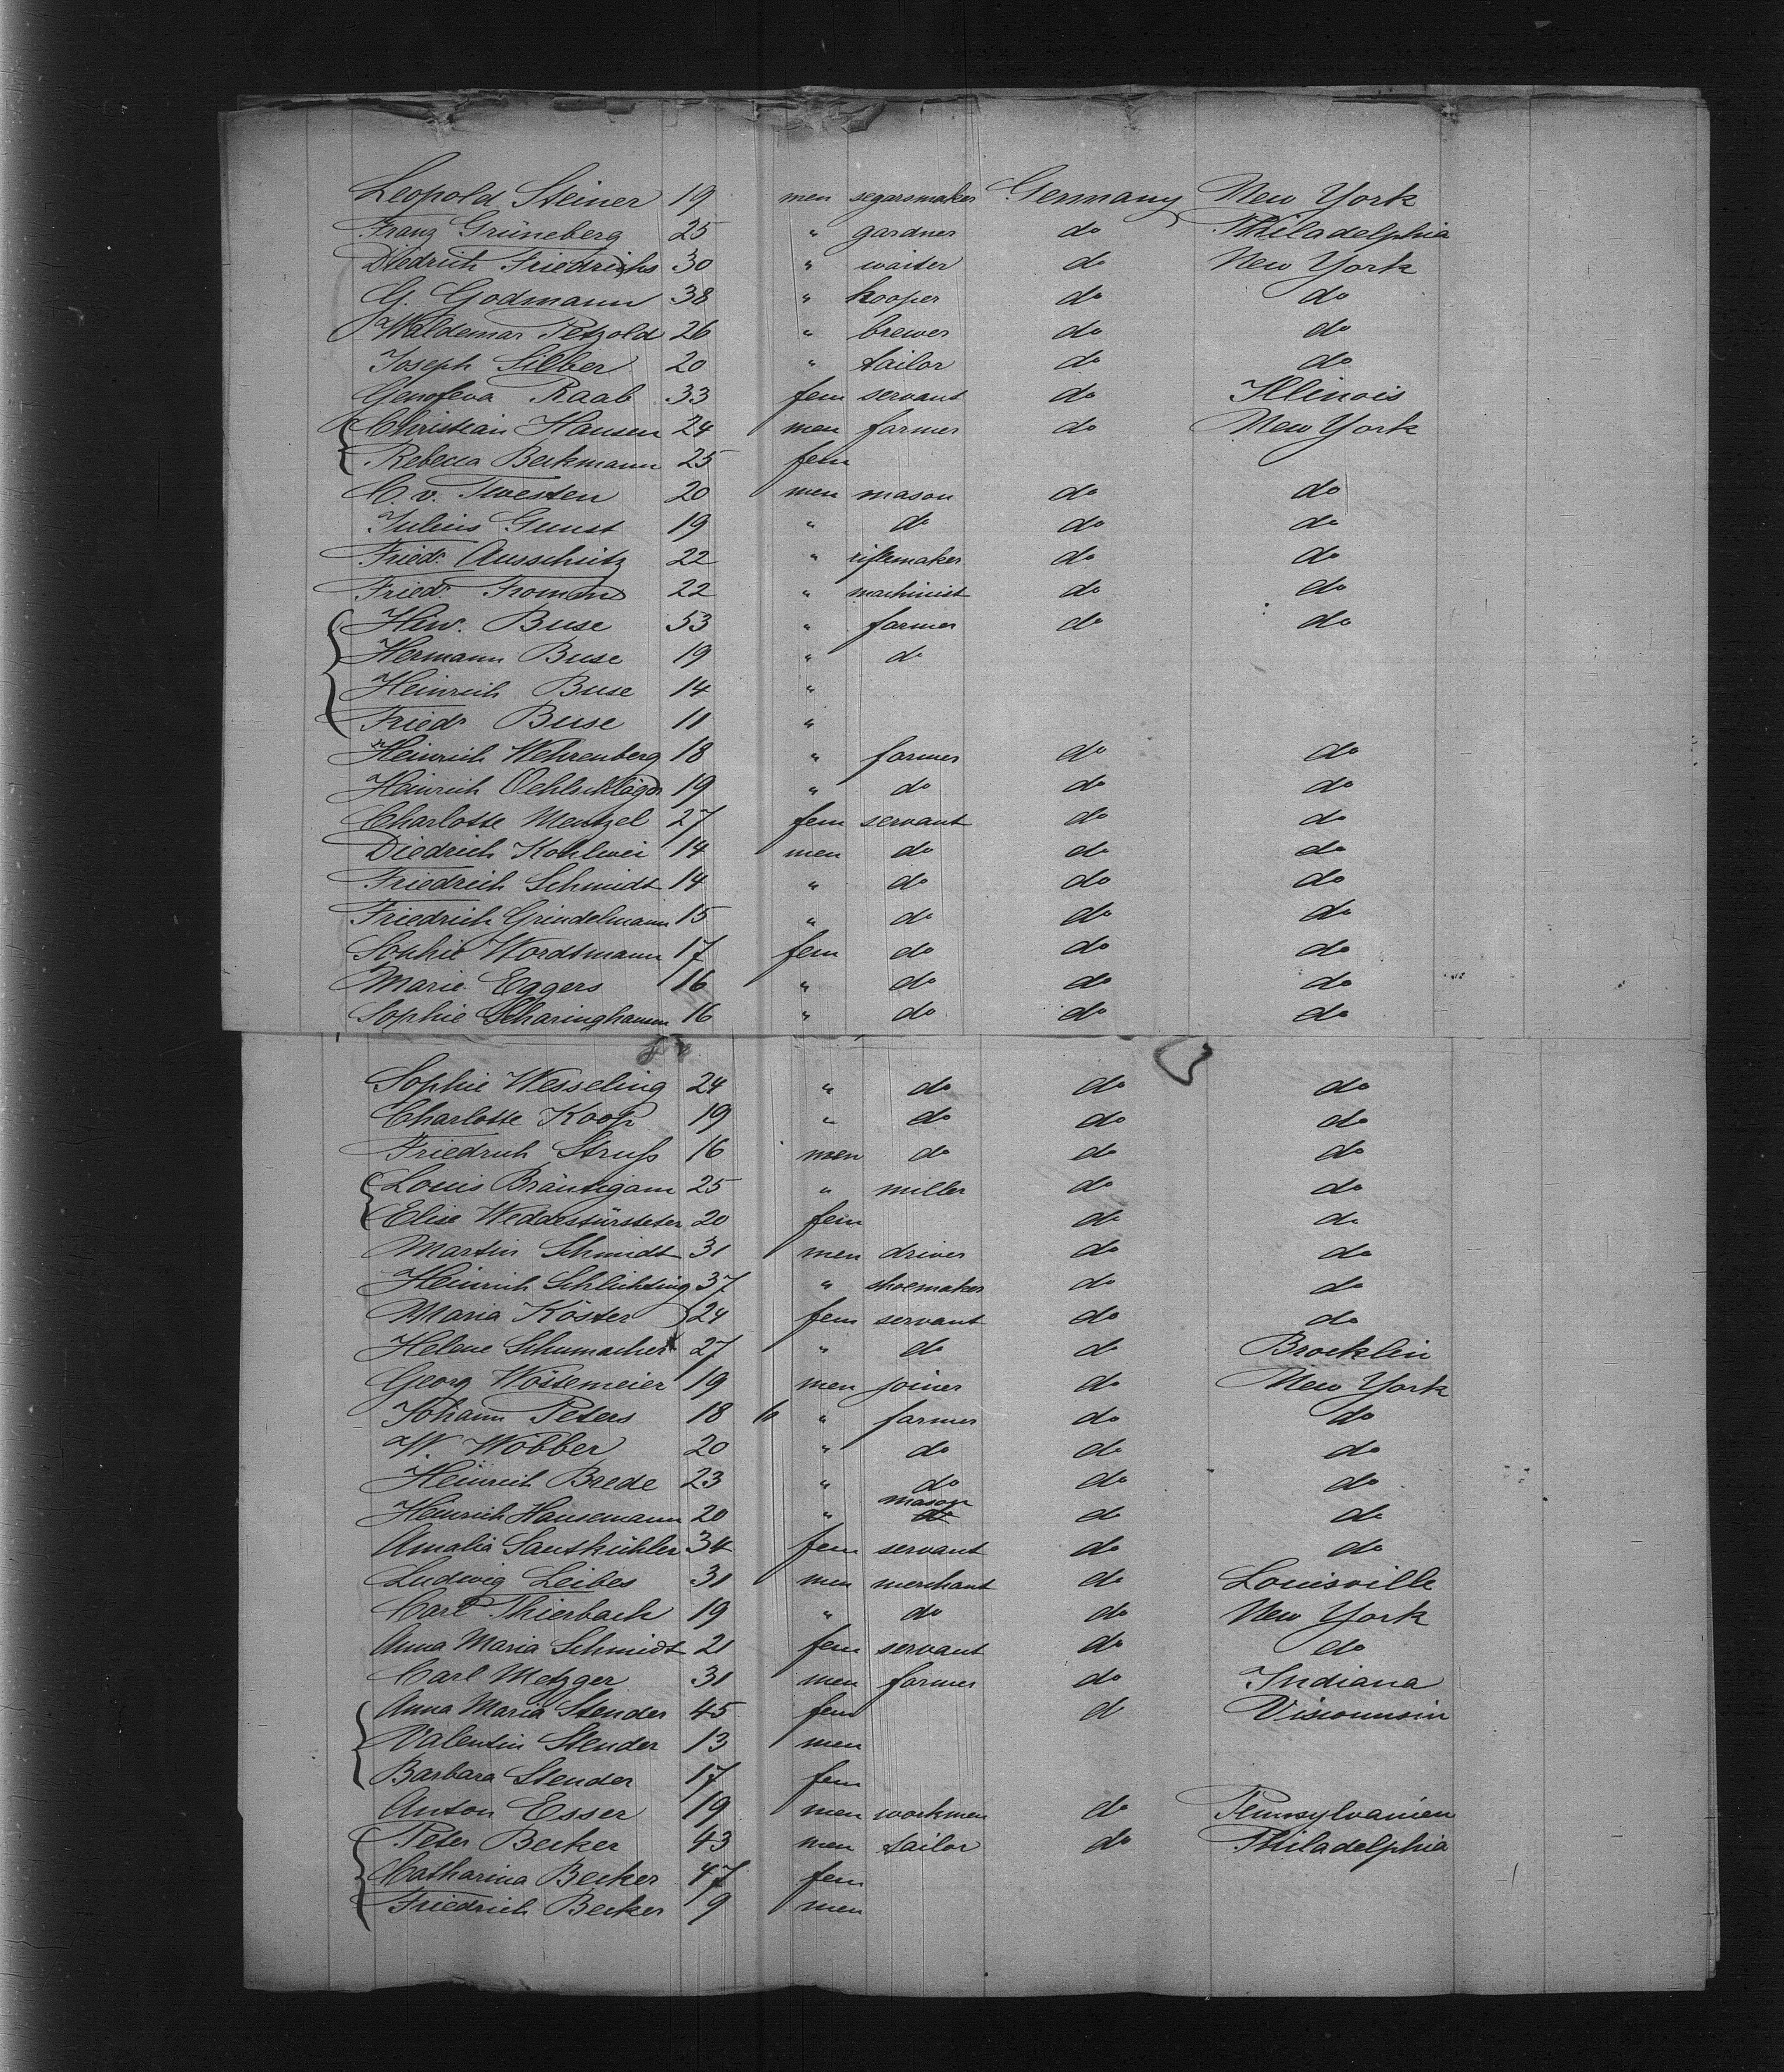 Leopold Steiner 19 men segarsmaker Germany New York
Franz Grüneberg 25 " gardner do Philadelphia
Diedrich Friedrichs 30 " waiter do New York
G. Godmann 38 " kooper do do
Waldemar Petzold 26 " brewer do do
Joseph Silber 20 " tailor do do
Genofeva Raab 33 fem servant do Illinois
Christian Hansen 24 men farmer do New York
Rebecca Beckmann 25 fem
C. v. Twesten 20 men mason do do
Julius Gunst 19 " do do do
Friedr. Ausschütz 22 " riflemaker do do
Friedr. Fromm 22 " machinist do do
Henr. Buse 53 " farmer do do
Hermann Buse 19 " do
Heinrich Buse 14 "
Friedr Buse 11 "
Heinrich Wehrenberg 18 " farmer do do
Heinrich Oehlschläger 19 " do do do
Charlotte Mentzel 27 fem servant do do
Diedrich Kohlwei 14 men do do do
Friedrich Schmidt 14 " do do do
Friedrich Grindelmann 15 " do do do
Sophie Wordtmann 17 fem do do do
Marie Eggers 16 " do do do
Sophie Scharinghausen 16 " do do do
Sophie Wesseling 24 " do do do
Charlotte Koop 19 " do do do
Friedrich Struß 16 men do do do
Louis Bräutigam 25 " miller do do
Elise 20 fem do do
Martin Schmidt 31 men driver do do
Heinrich Schlichting 37 " shoemaker do do
Maria Köster 24 fem servant do do
Helene Schumacher 27 " do do Brocklin
Georg Wöstemeier 19 men joiner do New York
Johann Peters 18 " farmer do do
W. Wöbber 20 " do do do
Heinrich Brede 23 " do do do
Heinrich Hansemann 20 " mason do do
Amalia Sautkühler 34 fem servant do do
Ludwig Leibes 31 men merchant do Louisville
Carl Thierbach 19 " do do New York
Anna Maria Schmidt 21 fem servant do do
Carl Metzger 31 men farmer do Indiana
Anna Maria Stender 45 fem d Visconnsin
Valentin Stender 13 men
Barbara Stender 17 fem
Anton Esser 19 men workmen do Pennsylvanien
Peter Becker 43 men tailor do Philadelphia
Catharina Becker 47 fem
Friedrich Becker 9 men